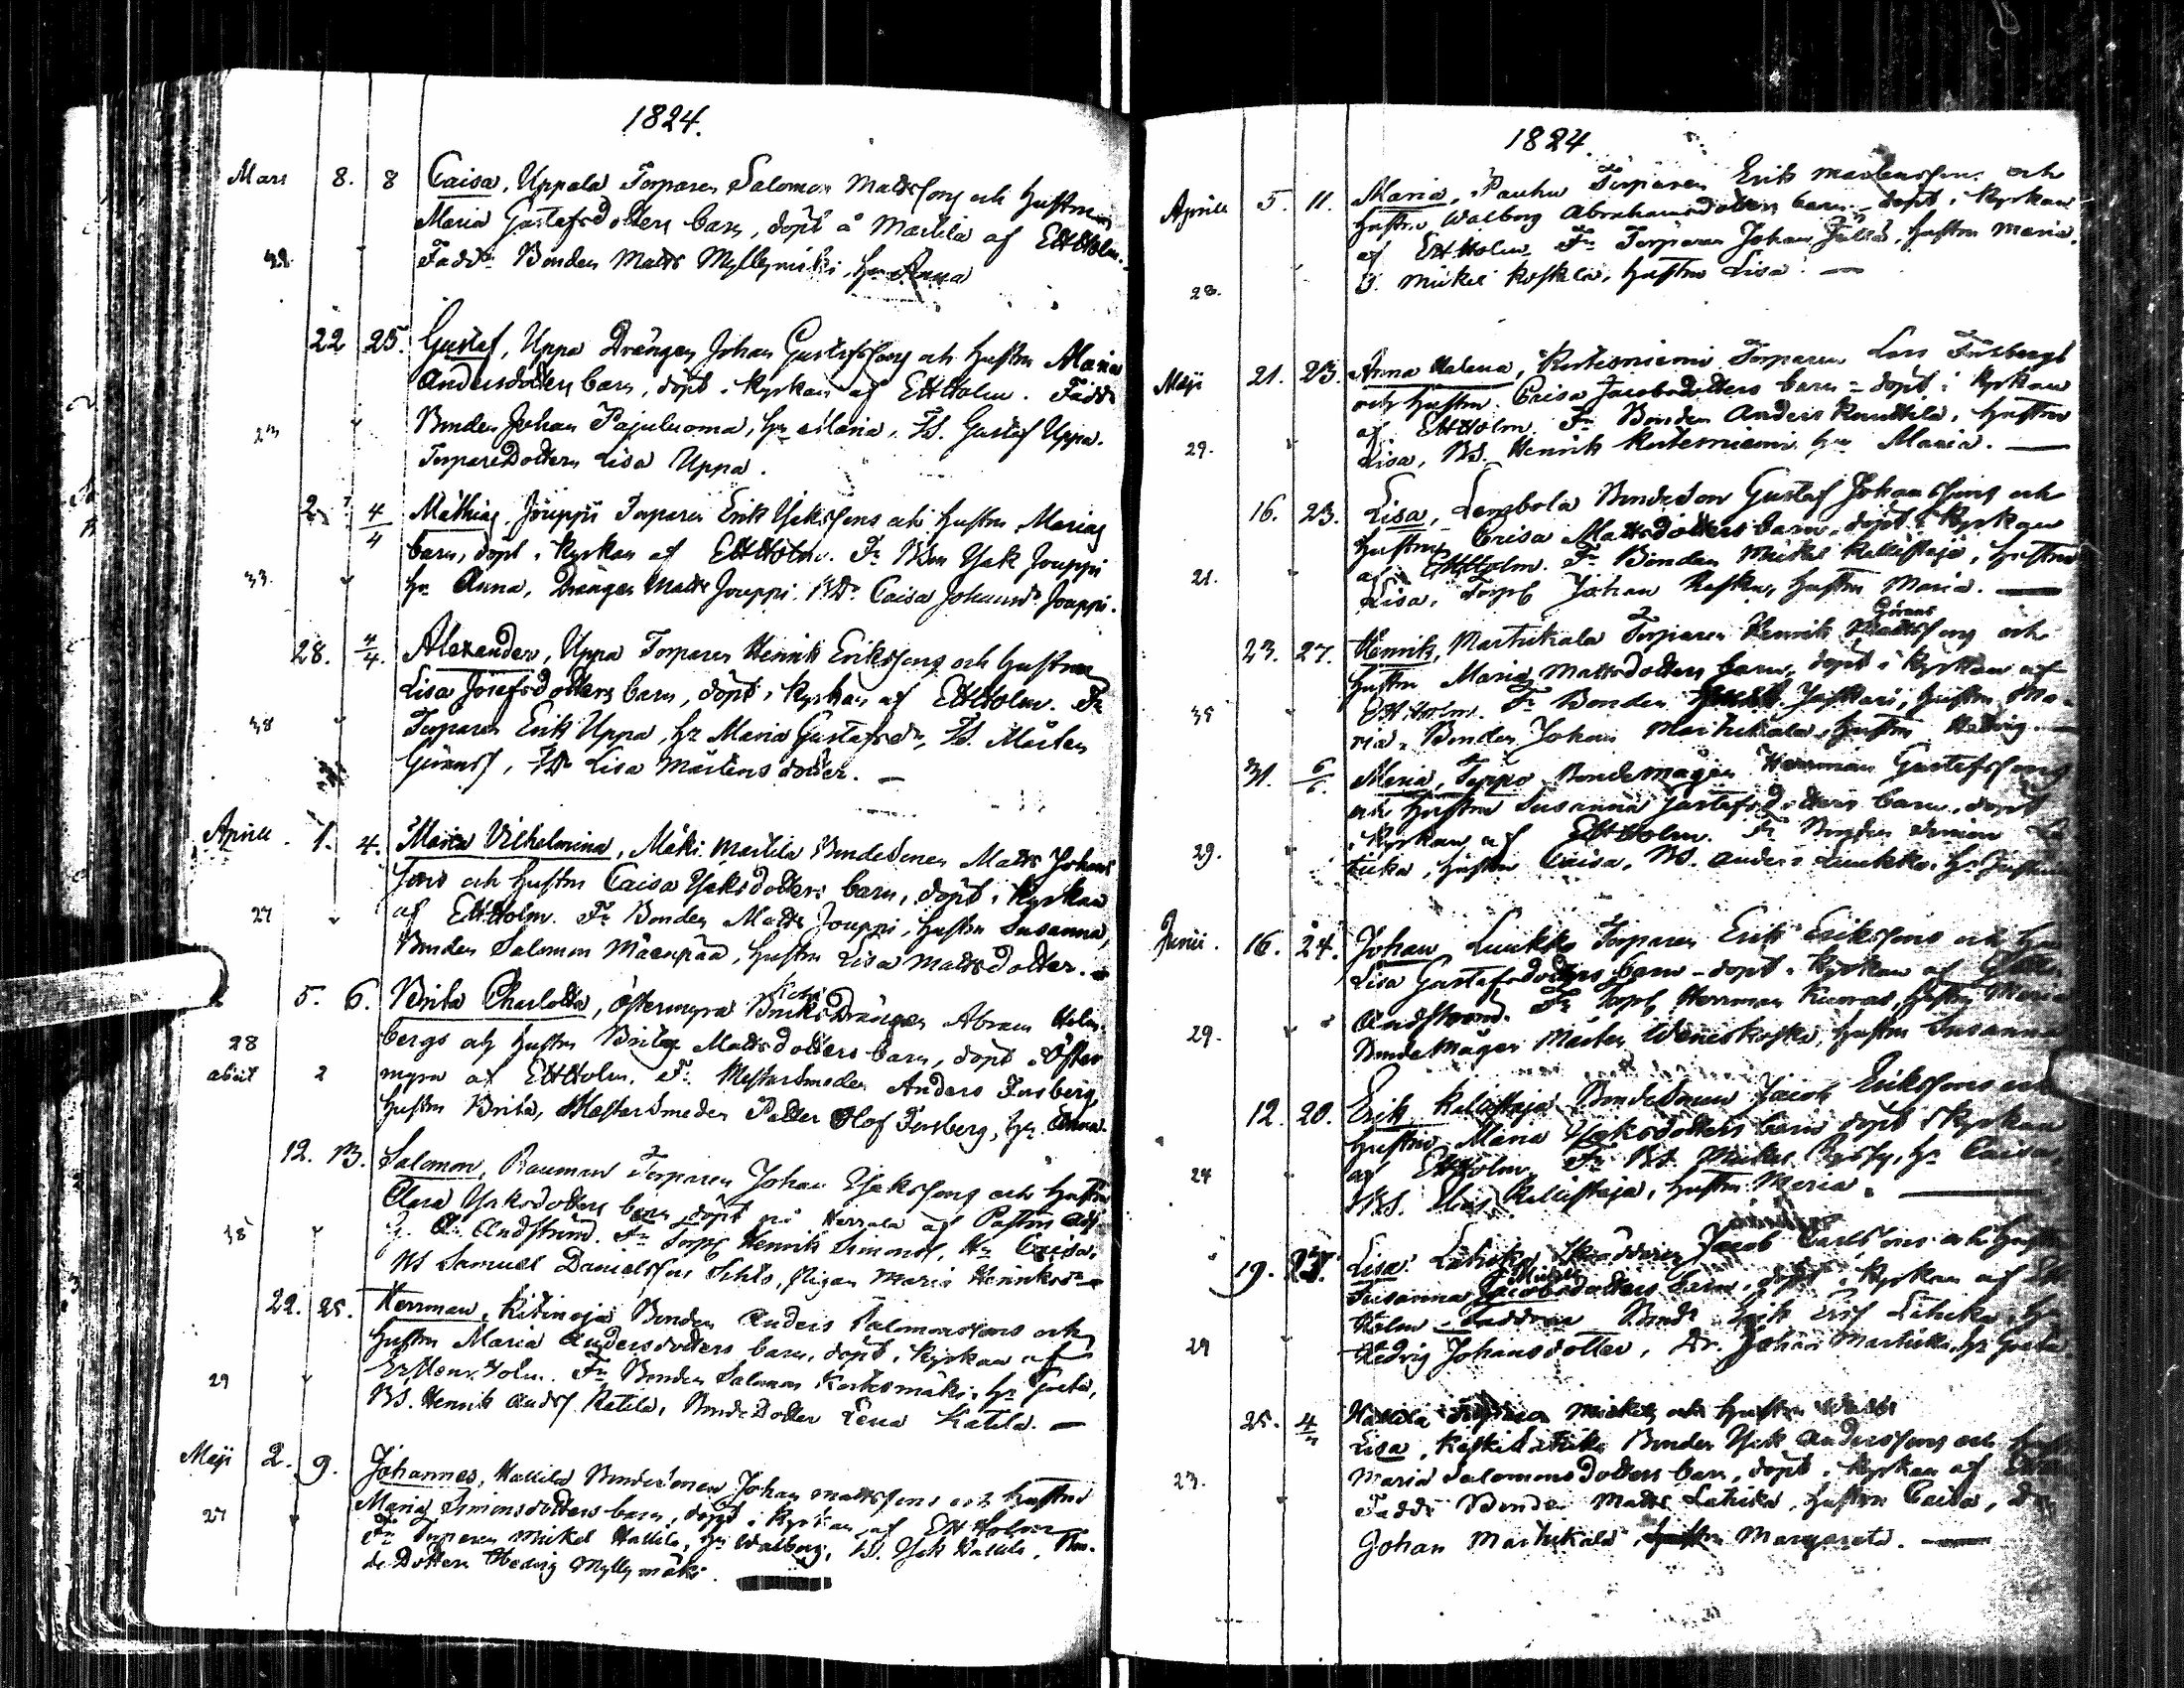 1824.
Mars 8. 8 Caisa, Uppala Torparen Salomon Mattssons och Hustrun
Maria Gustafsdotters barn, döpt å Martila af EHHolm.
42. Fadd: Bonden Matts Myllyniski, Hu Anna
22 25. Gustaf, Uppa Drängen Johan Gustafssons och Hustrun Maria
Andersdotters barn, döpt i Kyrkan af EHHolm. Fadd:
Bonden Johan Pajuluoma, Hu Maria, TS. Gustaf Uppa.
TorpareDottern Lisa Uppa.
4/4 Mathias Jouppi Torparen Erik Isakssons och Hustrun Marias
barn, döpt i Kyrkan af EHHolm. Fr Bdn Isak Jouppi
33. Hu Anna, Drängen Matts Jouppi, BDr Caisa Johansdr Jouppi.
28. 4/4. Alexander, Uppa Torparen Henrik Erikssons och Hustrun
Lisa Josefsdotters barn, döpt i Kyrkan af EHHolm. Fr
38 Torparen Erik Uppa, Hu Maria Gustafsdr, TS. Mårten
Göranss, TDr Lisa Mårtensdotter.
Aprill 1. 4. Maria Vilhelmina, Mäki Martila BondeSonen Matts Johans
sons och Hustrun Caisa Isaksdotters barn, döpt i Kyrkan
27 af EHHolm. Fr Bonden Matts Jouppi, Hustrun Susanna,
Bonden Salomon Mäenpää, Hustrun Lisa Mattsdotter.
5. 6. Brita Charlotta, Östermyra Bruks Drängen Abram Holm-
bergs och Hustrun Brita Mattsdotters barn, döpt i Öster
28 2 myra af EHHolm. Fr. MästarSmeden Anders Forsberg,
Hustrun Brita, MästarSmeden Petter Olof Forsberg, Hu Anna.
12. 13. Salomon, Rauman Torparen Johan Isakssons och Hustrun
Clara Isaksdotters barn döpt på Herrala af Pastors Adj
38 Andstrand. Fr Torp Henrik Simonss, Hu Caisa,
BS Samuel Danielsson, Pigan Maria Henriksdr
22. 25. Herrman, Ritinoja Bonden Anders Salomonssons och
Hustrun Maria Andersdotters barn, döpt i Kyrkan af
Er. Henr. Holm. Fr Bonden Salomon Kortesmäki, Hu Greta,
29 BS. Henrik Andss Katila, BondeDotter Lena Katila.
Maji 2. 9. Johannes, Hallila BondeSonen Johan Mattssons och Hustrun
Maria Simonsdotters barn, döpt i Kyrkan af EHHolm
27 Fr Torparen Mickel Hallila, Hu Walborg, BS. Isak Hallila, Bon-
deDottern Hedvig Myllymäki.
1824.
Aprill 5. 11. Maria, Pauhu Torparen Erik Mårtenssons och
Hustrun Walborg Abrahamsdotters barn - döpt i Kyrkan
af EHHolm. Fr Torparen Johan Jullas, Hustrun Maria.
28. B. Mickel Koskela, Hustrun Lisa.
Maji 21. 23. Anna Helena, Kortesniemi Torparen Lars Forsbergs
och Hustrun Caisa Jacobsdotters barn - döpt i Kyrkan
af EHHolm. Fr Bonden Anders Rauttila, Hustrun
29. Lisa, BS. Henrik Kortesniemi, Hu Maria.
16. 23. Lisa, Lensbola BondeSon Gustaf Johanssons och
Hustrun Caisa Mattsdotters barn, döpt i Kyrkan
af EHHolm. Fr Bonden Mickel Kallistaja, Hustrun
21. Lisa, Torp Johan Rasku, Hustrun Maria.
Görans
23. 27. Henrik, Martikala Torparen Henrik Mattssons och
Hustrun Maria Mattsdotters barn, döpt i Kyrkan af
EHHolm. Fr Bonden Jaskari, Hustrun Ma-
35 ria, Bonden Johan Martikala, Hustrun Hedvig.
31. 6/6. Maria, Teppo BondeMågen Herrman Gustafssons
och Hustrun Susanna Gustafsdotters barn, döpt
i Kyrkan af EHHolm. Fr Bonden Simon La
29. tuka, Hustrun Caisa, BS. Anders Luukko, Hu Justina
Junii. 16. 24. Johan, Luukko Torparen Erik Erikssons och Hu
Lisa Gustafsdotters barn - döpt i Kyrkan af
Andstrand. Fr Torp Herrman Kuoras, Hustrun Maria
29. BondeMågen Mårten Weneskoski, Hustrun Susanna
12. 20. Erik, Kallistaja BondeSonen Jacob Erikssons och
Hustrun Maria Isaksdotters barn döpt i Kyrkan
af EHHolm. Fr BS. Mickel Hu Caisa,
24 BS. Elias Kallistaja, Hustrun Maria.
19. Lisa. Latuka Skräddaren Jacob Carlssons och Hustrun
Susanna dotters barn, döpt i Kyrkan af EH
Holm - Faddrar Bond: Erik Erss Latuka, Hu
29 Hedvig Johansdotter, Dr. Johan Martikala, Hu Greta
Hallila Torparen Mickels och Hustrun Walb
25. 4/7 Lisa, Koski Latuka Bonden Isak Anderssons och Hustrun
Maria Salomonsdotters barn, döpt i Kyrkan af
23. Fadd: Bonden Matts Latuka, Hustrun Caisa,
Johan Martikala, Hustrun Margareta.